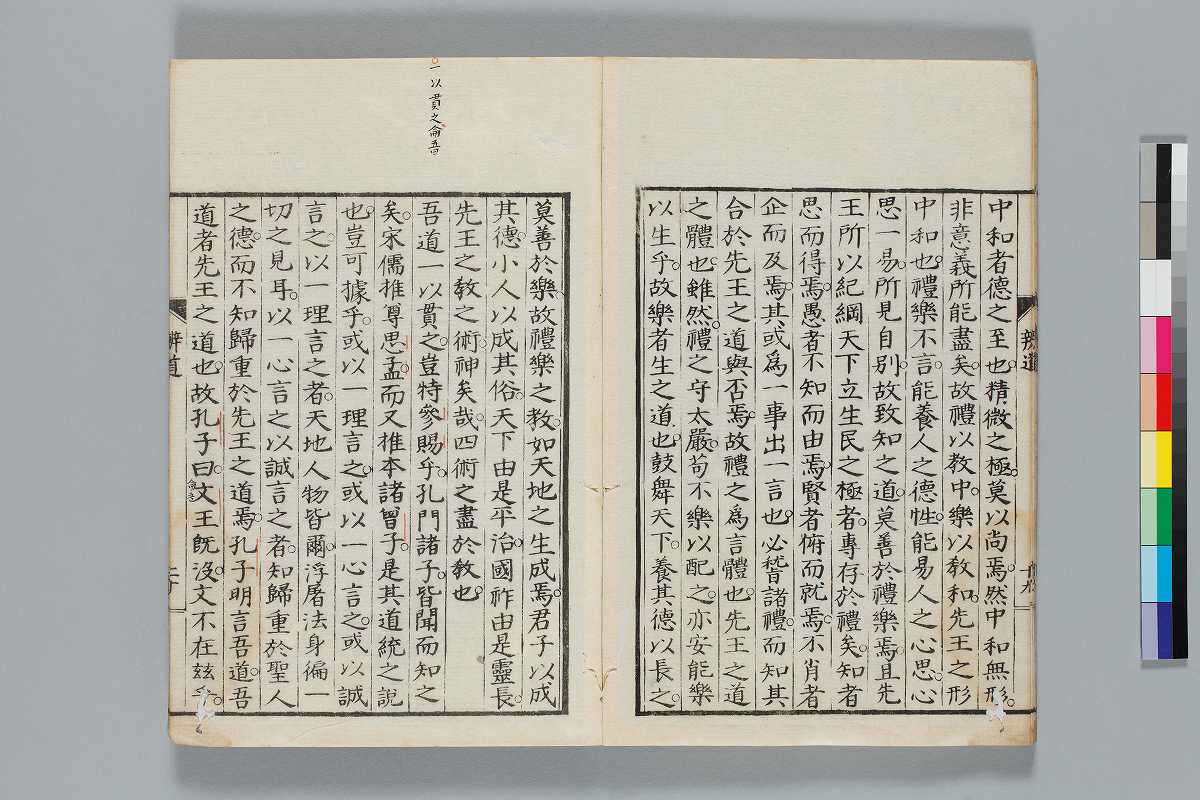 中和者德之至也精微之極莫以尚焉然中和無形
非意義所能盡矣故禮以教中樂以教和先王之形
中和也禮樂不言能養人之德性能易人之心思心
思一易所見自別故致知之道莫善於禮樂焉且先
王所以紀綱天下立生民之極者專存於禮矣知者
思而得焉愚者不知而由焉賢者俯而就焉不肖者
企而及焉其或爲一事出一言也必稽諸禮而知其
合於先王之道與否焉故禮之爲言體也先王之道
之體也雖然禮之守太嚴苟不樂以配之亦安能樂
以生乎故樂者生之道也鼓舞天下養其德以長之
辨道
十九
一以貫之侖吾
莫善於樂故禮樂之教如天地之生成焉君子以成
其德小人以成其俗天下由是平治國祚由是靈長
先王之教之術神矣哉四術之盡於教也
吾道一以貫之豈特參賜乎孔門諸子皆聞而知之
矣宋儒推尊思孟而又推本諸曾子是其道統之說
也豈可據乎或以一理言之或以一心言之或以誠
言之以一理言之者天地人物皆爾浮屠法身徧一
切之見耳以一心言之以誠言之者知歸重於聖人
之德而不知歸重於先王之道焉孔子明言吾道吾
道者先王之道也故孔子曰文王既沒文不在茲乎
辨道